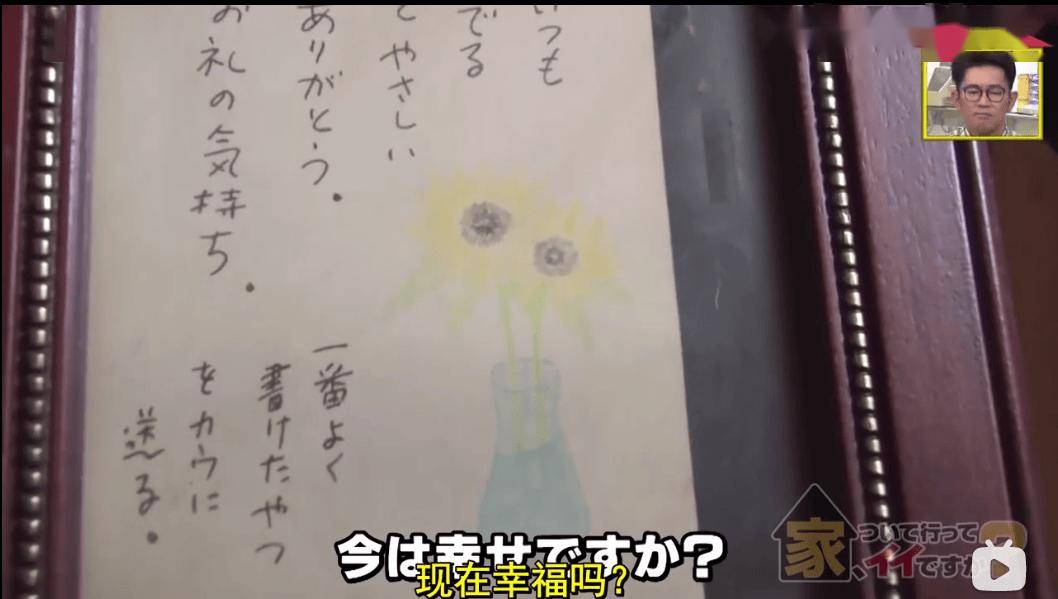 いつも
でる
とやさしい
ありがとう。
お礼の気持ち。
一番よく
書けたやつ
をカウに
送る。
今は幸せですか?
现在幸福吗?
家、ついて行って
イイですか